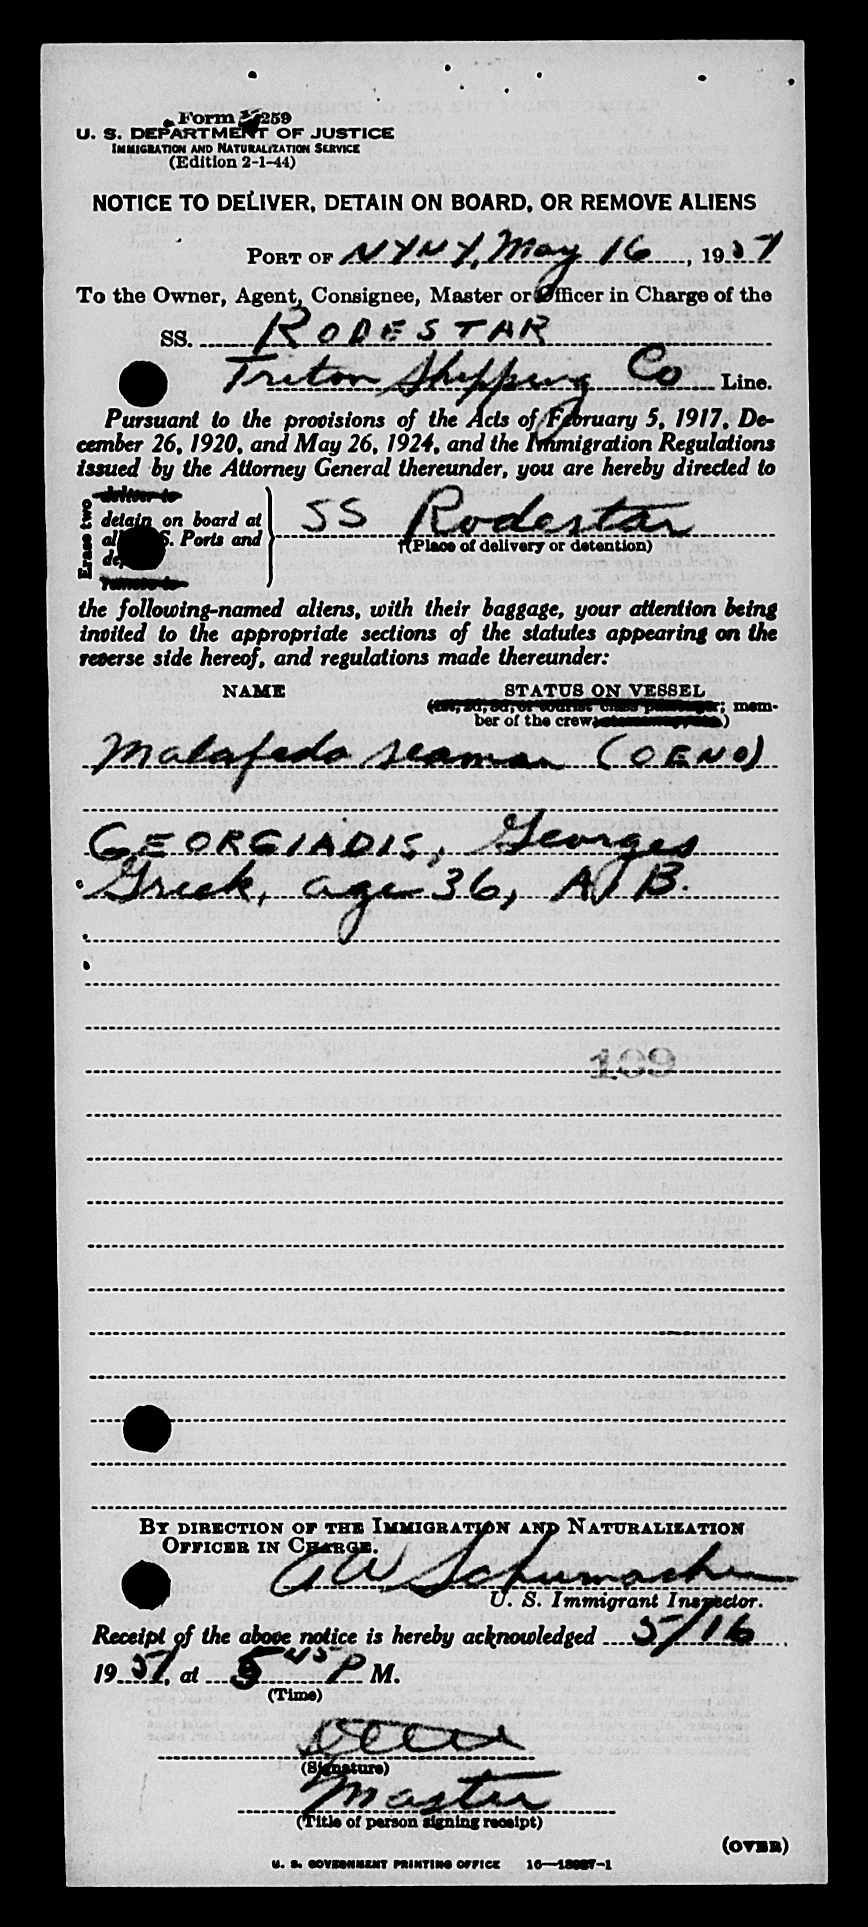 Form I-259
U. S. DEPARTMENT OF JUSTICE
IMMIGRATION AND NATURALIZATION SERVICE
(Edition 2-1-44)
NOTICE TO DELIVER, DETAIN ON BOARD, OR REMOVE ALIENS
PORT OF NYNY, May 16, 1951
To the Owner, Agent, Consignee, Master or Officer in Charge of the
SS. RODESTAR
Triton Shipping Co Line.
Pursuant to the provisions of the Acts of February 5, 1917, De-
cember 26, 1920, and May 26, 1924, and the Immigration Regulations
issued by the Attorney General thereunder, you are hereby directed to
Erase two
detain on board at
all S. Ports and
SS Rodestar
(Place of delivery or detention)
the following-named aliens, with their baggage, your attention being
invited to the appropriate sections of the statutes appearing on the
reverse side hereof, and regulations made thereunder:
NAME STATUS ON VESSEL
(1st, 2d, 3d, or tourist class passenger; mem-
ber of the crew; )
Malafedo seaman (OENO)
GEORGIADIS, Georges
Greek, age 36, A. B.
109
BY DIRECTION OF THE IMMIGRATION AND NATURALIZATION
OFFICER IN CHARGE.
AW Schumacher
U. S. Immigrant Inspector.
Receipt of the above notice is hereby acknowledged 5/16
1951, at 5 45 P M.
(Time)
(Signature)
Master
(Title of person signing receipt)
(OVER)
U. S. GOVERNMENT PRINTING OFFICE 16—18987-1